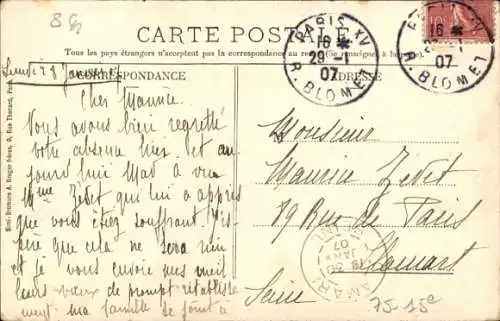 8 G
CARTE POSTALE
Tous les pays étrangers n'acceptent pas la correspondance au recto (Se renseigner à la
CORRESPONDANCE
ADRESSE
PARIS XV
16
29-1
07
R. BLOMET
16
07
R. BLOMET
Lundi 28 Janvier
Cher Maurice
Vous avons bien regretté
votre absence hier et au
jourd'hui Mad a vu
Mme Zedet qui lui a appris
que vous étiez souffrant J'es-
père que cela ne sera rien
et je vous envoie mes meil
leurs vœux de prompt rétablisse
ment ma famille se joint à
Monsieur
Maurice Zedet
79 Rue de Paris
Clamart
Seine
75-15e